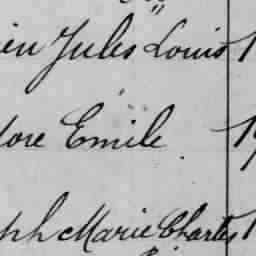 en Jules Louis 1
dore Emile 19
ph Marie Charles 1